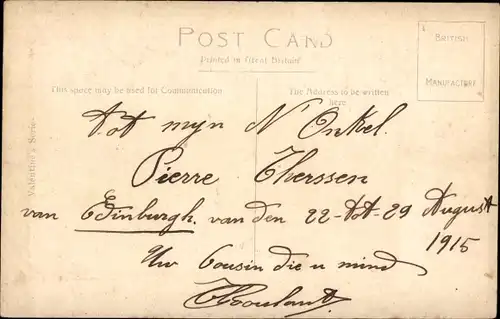 POST CARD
Printed in Great Britain
BRITISH
MANUFACTURE
This space may be used for Communication
The Address to be written
here
Valentine's Series
tot myn N Onkel
Pierre Therssen
van Edinburgh. van den 22-tot-29 August
1915
Uw Cousin die u mind